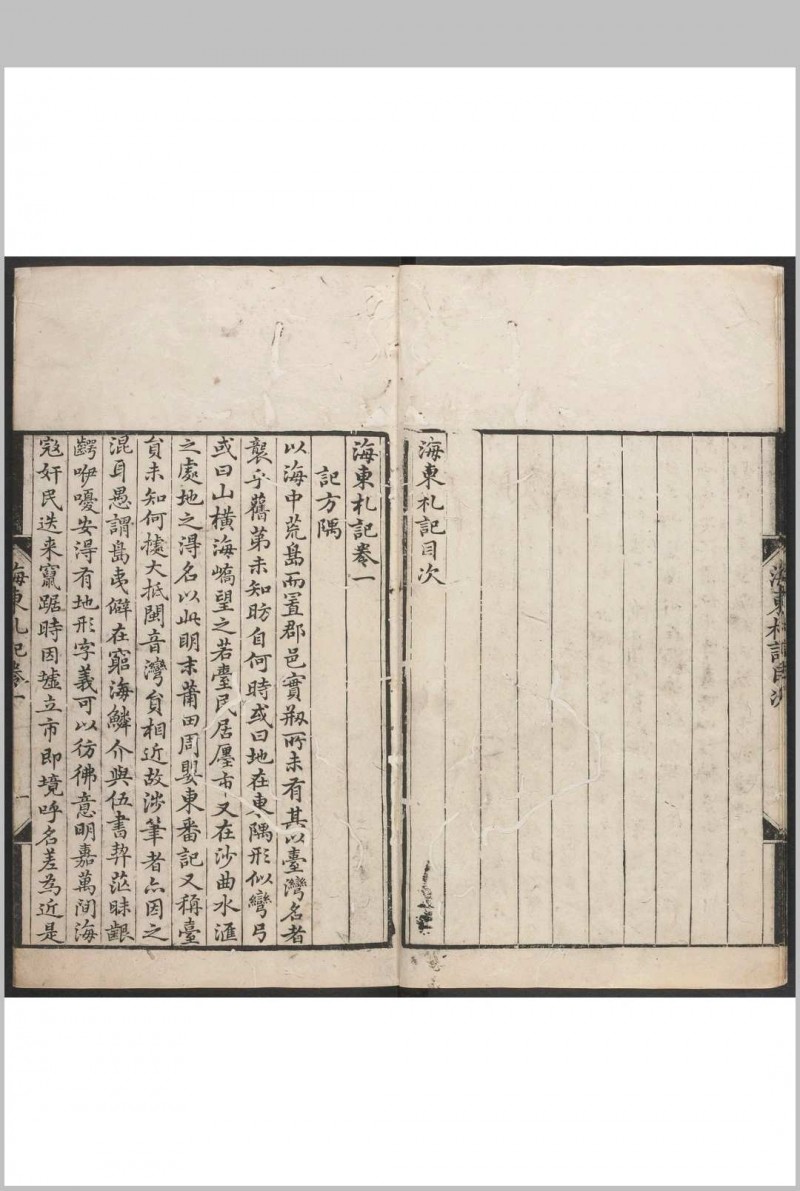 海東札記目次
海東札記卷一
記方隅
以海中荒島而置郡邑實剙所未有其以臺灣名者
襲乎舊第未知昉自何時或曰地在東隅形似彎弓
或曰山橫海嶠望之若臺民居廛市又在沙曲水滙
之處地之淂名以此明末莆田周嬰東番記又稱臺
員未知何據大抵閩音灣員相近故涉筆者亦因之
混耳愚謂島夷僻在窮海鱗介與伍書契茫昧齦
齶咿嚘安淂有地形字義可以彷彿意明嘉萬間海
寇奸民迭来竄踞時因墟立市即境呼名差為近是
海東札記卷一
一
海東札記目次